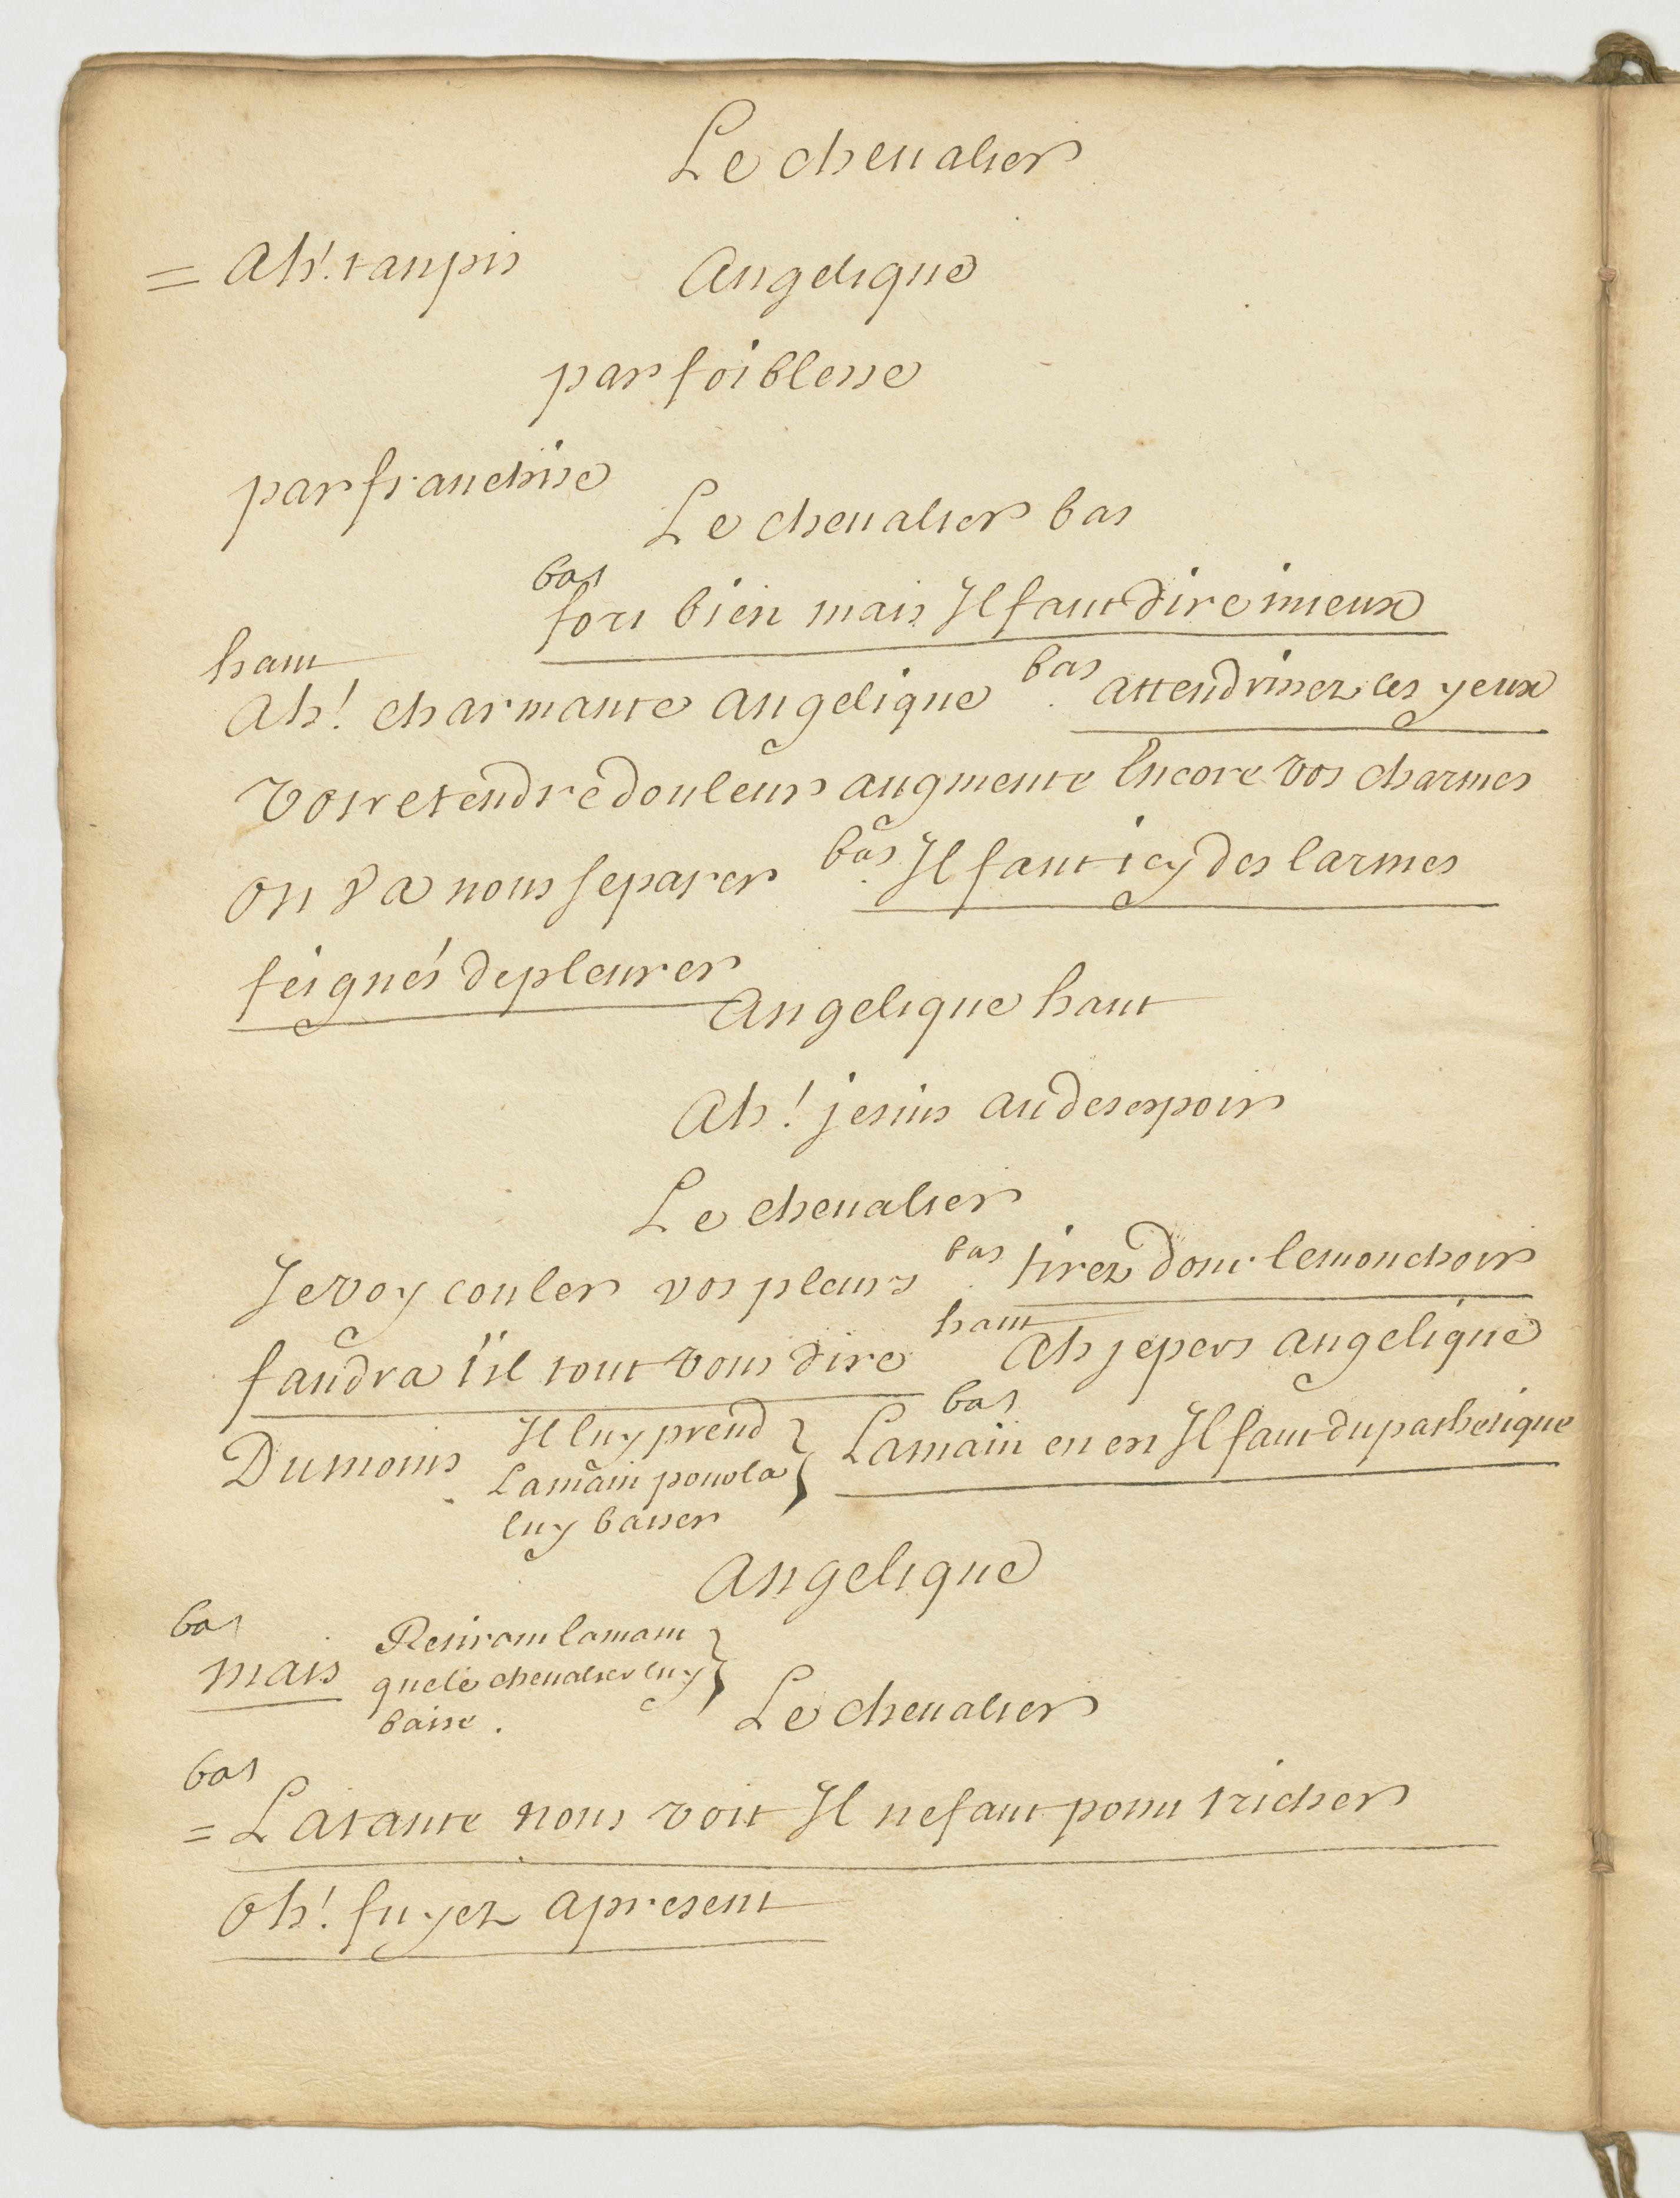 Le chevalier
= Ah! tanpis
Angelique
par foiblesse
par franchise
Le chevalier bas
bas
fort bien mais Il faut dire mieux
haut
Ah! charmante angelique bas attendrissez ces yeux
Votre tendre douleur augmente Encore vos charmes
on va nous separer bas Il faut icy des larmes
feignés de pleurer
Angelique haut
Ah! je suis au desespoir
Le chevalier
Je voy couler vos pleurs bas tirez donc le mouchoir
faudra t'il tout vous dire haut Ah je pers angelique
Du moins Il luy prend
La main pour la
luy baiser
bas
La main en en Il faut du pathetique
Angelique
bas
mais Retirant la main
que le chevalier luy
baise.
Le chevalier
bas
= La tante nous voit Il ne faut point tricher
oh! fuyez apresent